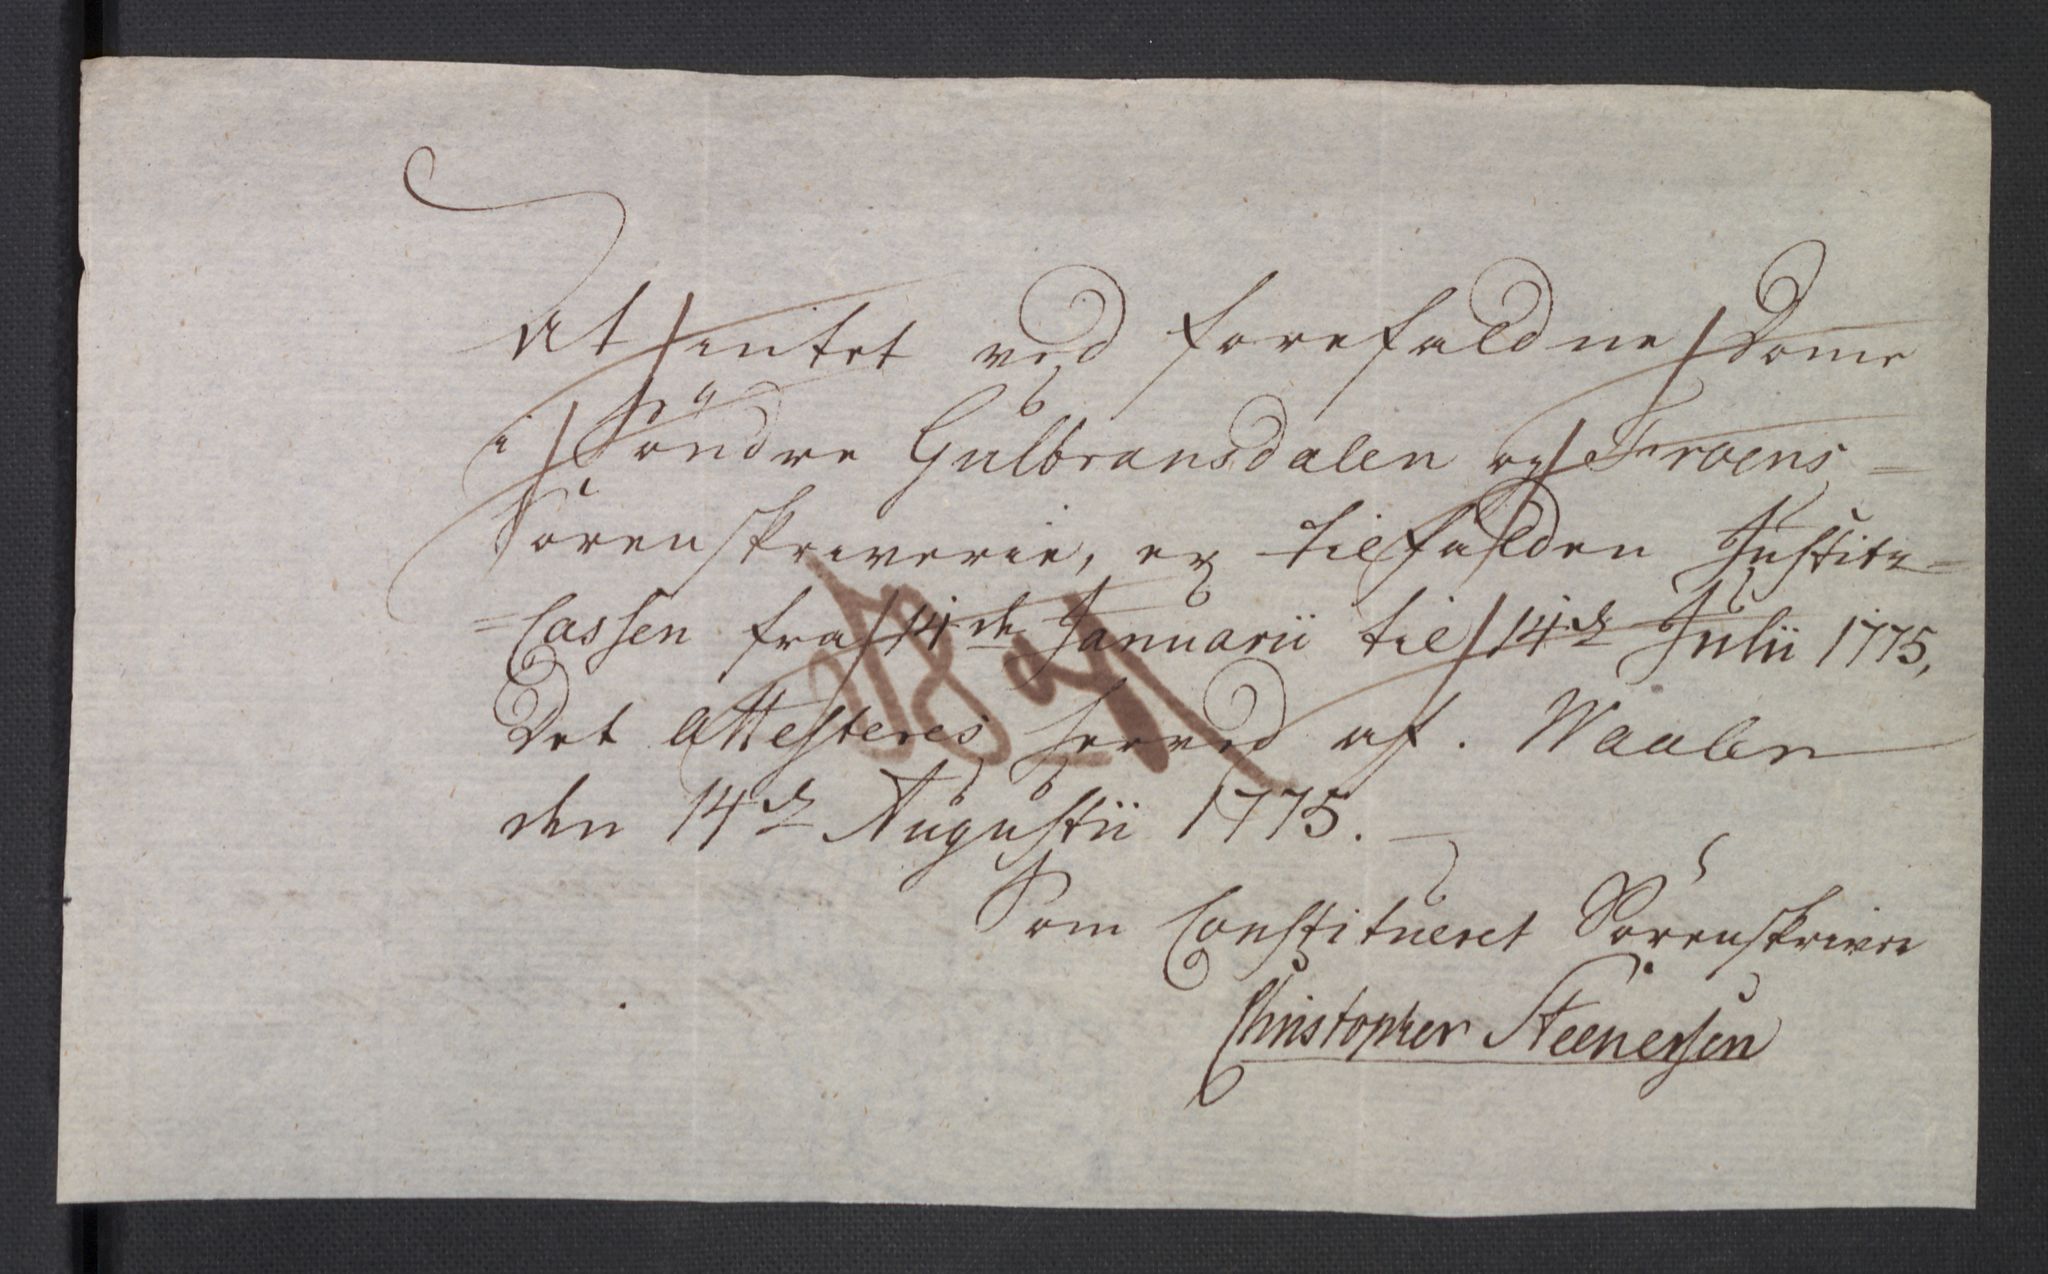 At intet ved forefaldne Domme
i Söndre Gulbransdalen og Froens=
Sorenskriverie, er tilfalden Justitz=
=Cassen fra 14de Januarii til 14de Julii 1775,
Det Attesteres herved af. Waalen
den 14de Augustii 1775.
Som Constitueret Sorenskriver
Christopher Steenersen